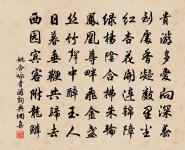 貴游多愛向深春
到處香凝數里塵
紅杏花開連錦障
綠楊陰合拂朱輪
鳳凰尊畔飛金盞
絲竹聲中醉玉人
日暮垂鞭共歸去
西園賓客附龍鱗
姚合詠貴游